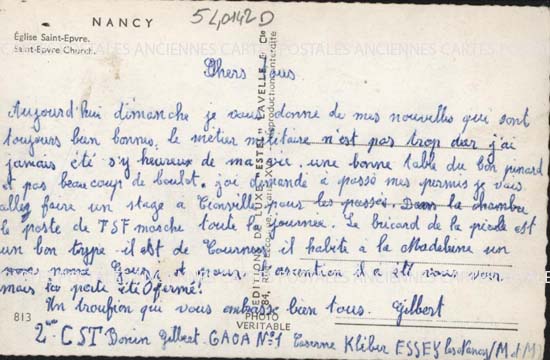 NANCY
54,0142 D
Église Saint-Epvre.
Saint-Epvre Church.
CARTES POSTALES ANCIENNES CARTES POSTALES ANCIENNES CARTES
Chers tous
Aujourd'hui dimanche je vous donne de mes nouvelles qui sont
toujours bien bonnes, le métier militaire n'est pas trop dur j'ai
jamais été s'y heureux de ma vie. une bonne table du bon pinard
et pas beaucoup de boulot. j'ai demandé à passé mes permis je vais
allez faire un stage à pour les passés. Dans la chambre
le poste de TSF marche toute la journée. Le bricard de la piole est
un bon type il est de Tournes, il habite à la Madeleine un
nommé Louis, et pour ascention il a été vous voir
mais la porte été fermé!
Un troufion qui vous embrasse bien tous. Gilbert
2me CST Bonin Gilbert GAOA N°1 Caserne Kléber ESSEY les Nancy (M et M)
813
EDITIONS DE LUXE "ESTEL" LAVELLE & Cie
PHOTO
VERITABLE